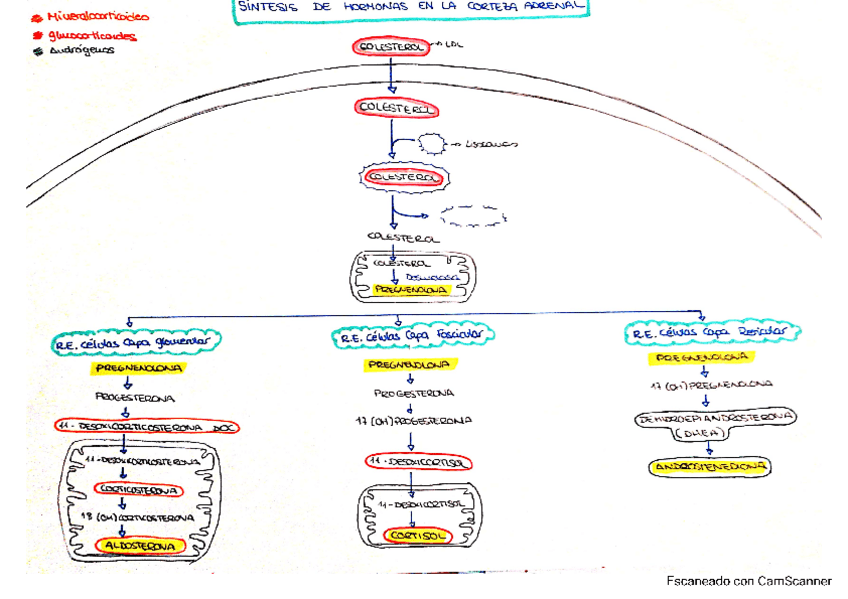 SÍNTESIS DE HORMONAS EN LA CORTEZA ADRENAL
Mineralocorticoideo
glucocorticoides
Andrógenos
COLESTEROL → LDL
COLESTEROL
→ Lisosomas
COLESTEROL
COLESTEROL
COLESTEROL
Desmolasa
PREGNENOLONA
R.E. Células Capa Glomerular
PREGNENOLONA
PROGESTERONA
11-DESOXICORTICOSTERONA DOC
11-DESOXICORTICOSTERONA
CORTICOSTERONA
18 (OH) CORTICOSTERONA
ALDOSTERONA
R.E. Células Capa Fascicular
PREGNENOLONA
PROGESTERONA
17 (OH) PROGESTERONA
11-DESOXICORTISOL
11-DESOXICORTISOL
CORTISOL
R.E. Células Capa Reticular
PREGNENOLONA
17 (OH) PREGNENOLONA
DEHIDROEPIANDROSTERONA
(DHEA)
ANDROSTENEDIONA
Escaneado con CamScanner